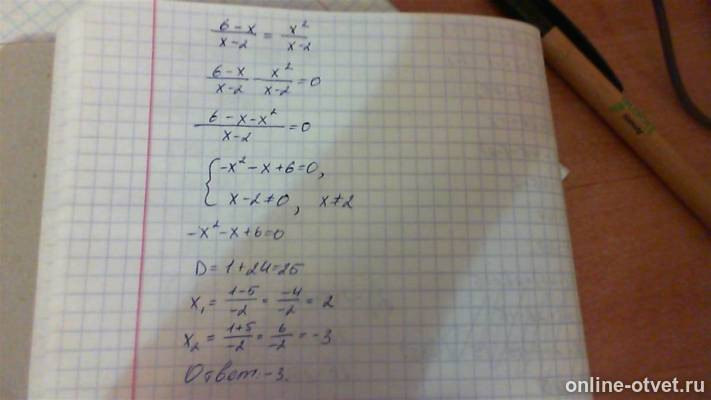 (6-x)/(x-2) = x²/(x-2)
(6-x)/(x-2) - x²/(x-2) = 0
(6-x-x²)/(x-2) = 0
{ -x²-x+6=0,
x-2≠0, x≠2
-x²-x+6=0
D=1+24=25
x₁ = (1-5)/(-2) = (-4)/(-2) = 2
x₂ = (1+5)/(-2) = 6/(-2) = -3
Ответ: -3.
online-otvet.ru